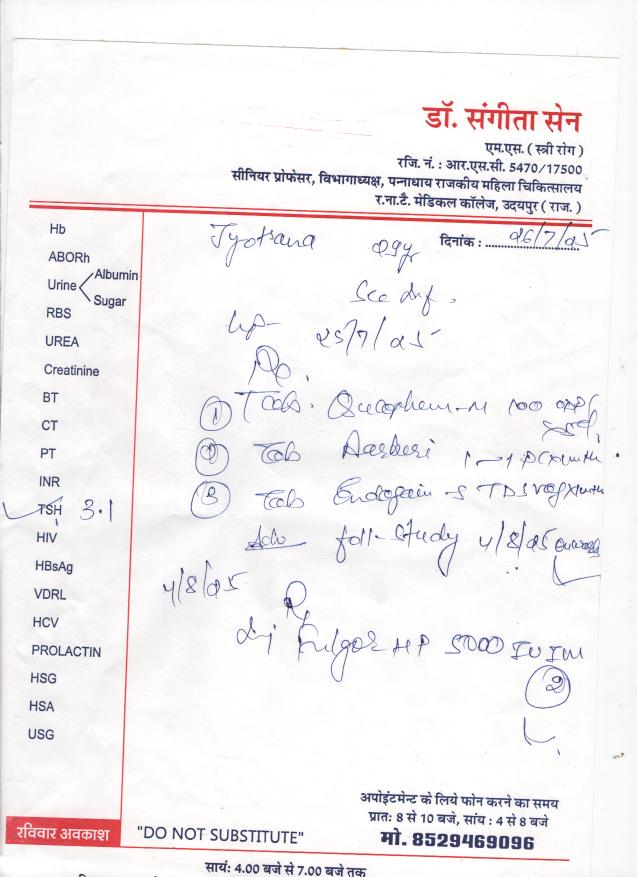 डॉ. संगीता सेन
एम.एस. ( स्त्री रोग )
रजि. नं. : आर.एस.सी. 5470/17500
सीनियर प्रोफेसर, विभागाध्यक्ष, पन्नाधाय राजकीय महिला चिकित्सालय
र.ना.टै. मेडिकल कॉलेज, उदयपुर ( राज. )
Jyotsana 29yr दिनांक : 26/7/25
Hb
ABORh
Urine Albumin
Sugar
RBS
UREA
Creatinine
BT
CT
PT
INR
TSH 3.1
HIV
HBsAg
VDRL
HCV
PROLACTIN
HSG
HSA
USG
25/7/25
Rx
① Tab. 100
② Tab
③ Tab TDS
Adv foll-study 4/8/25
4/8/25
Rx
Inj HP 5000 IU IM
②
अपोइंटमेन्ट के लिये फोन करने का समय
प्रातः 8 से 10 बजे, सांय : 4 से 8 बजे
मो. 8529469096
रविवार अवकाश
"DO NOT SUBSTITUTE"
सायं: 4.00 बजे से 7.00 बजे तक